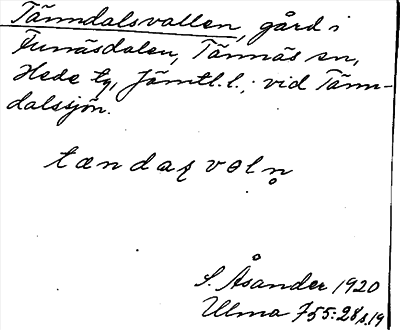 Tänndalsvallen, gård i
Funäsdalen, Tännäs sn,
Hede tg, Jämtl. l.; vid Tänn-
dalssjön.
tændaʂvɵln̥
S. Åsander 1920
Ulma 755:28 s.19